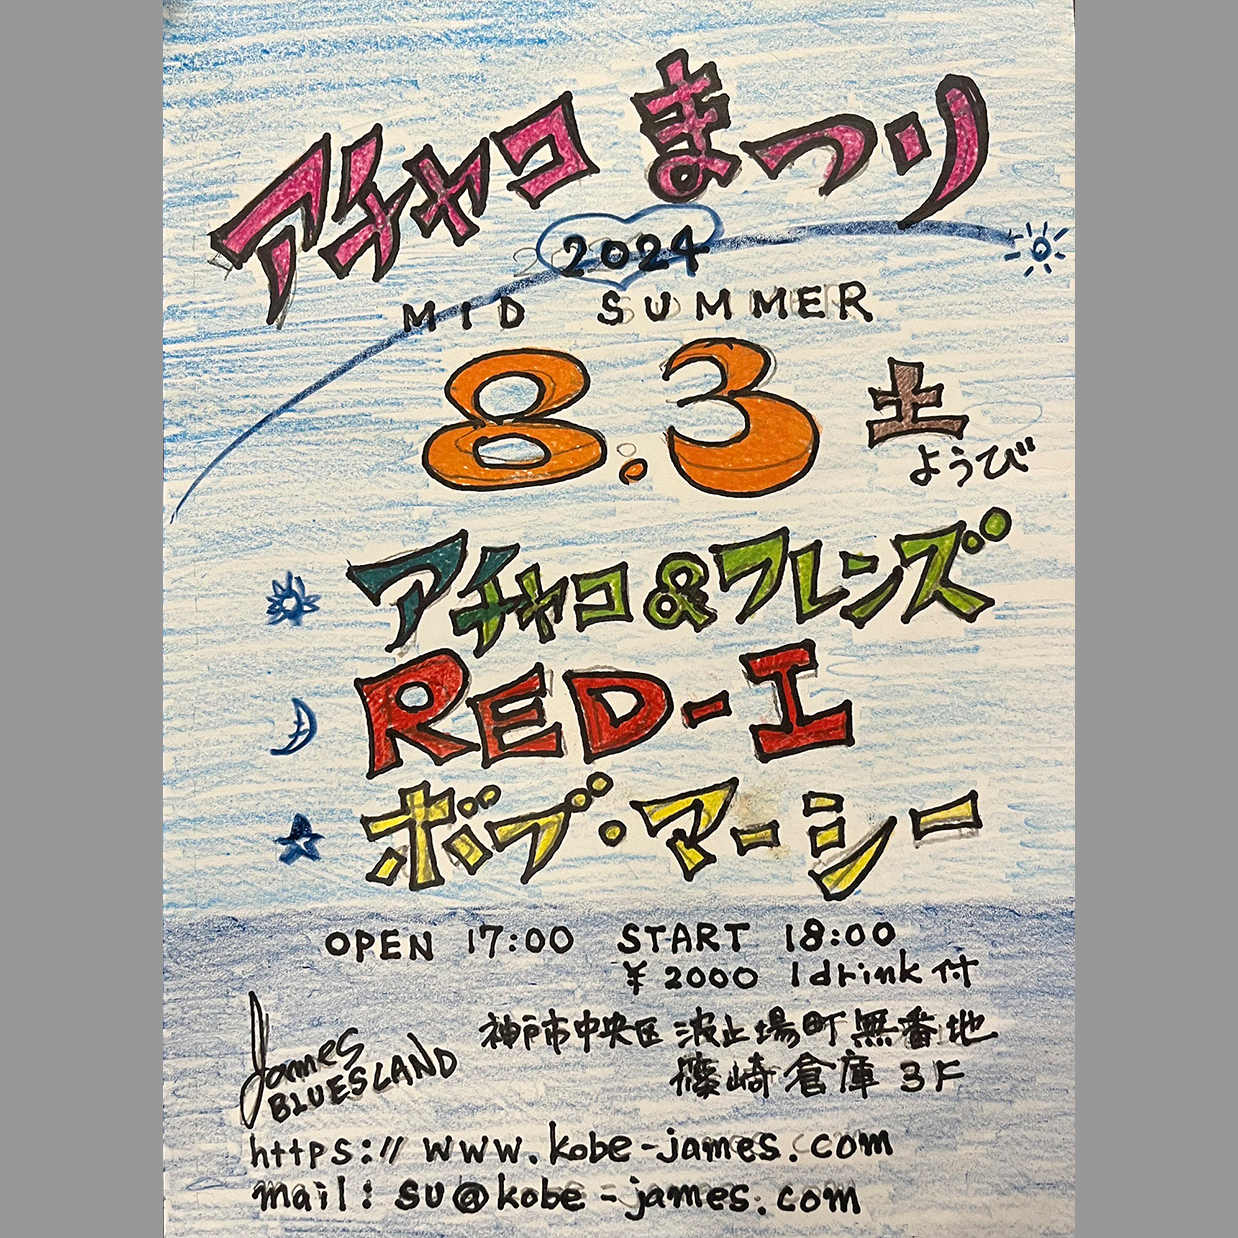 アチャコまつり
2024
MID SUMMER
8.3 土ようび
アチャコ&フレンズ
RED-I
ボブ・マーシー
OPEN 17:00 START 18:00
¥2000 1drink付
James
BLUESLAND
神戸市中央区 波止場町無番地
篠崎倉庫 3F
https://www.kobe-james.com
mail: su@kobe-james.com